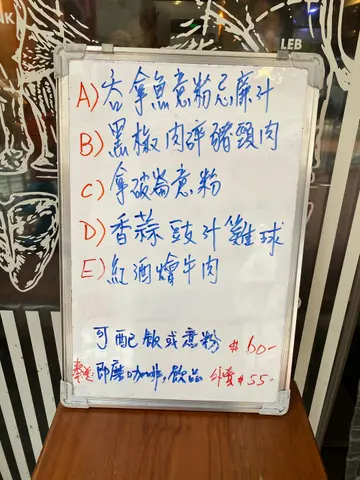 LEB
A) 吞拿魚意粉忌廉汁
B) 黑椒肉碎豬頸肉
C) 拿破崙意粉
D) 香蒜豉汁雞球
E) 紅酒燴牛肉
可配飯或意粉 $60-
即磨咖啡,飲品 外賣$55-